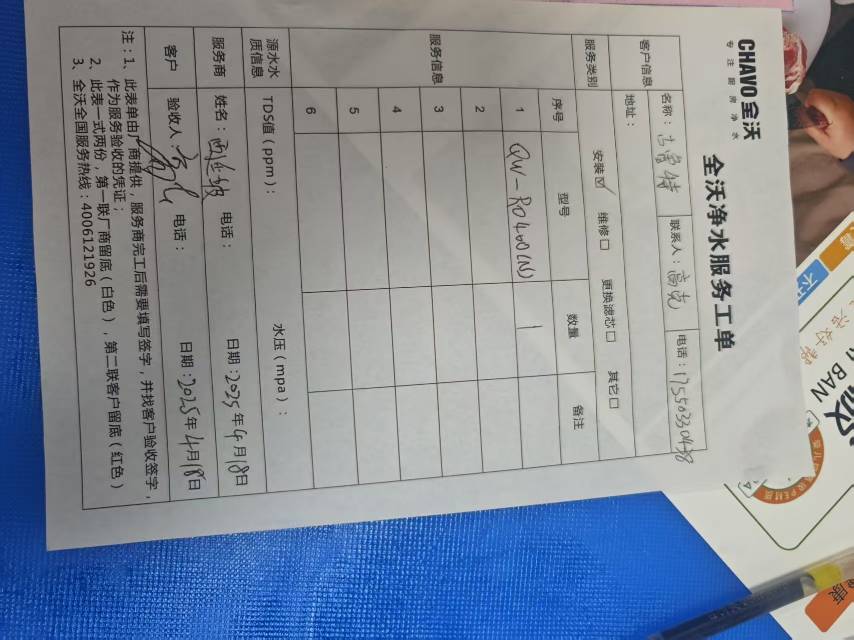 CHAVO全沃
专注厨房净水
全沃净水服务工单
客户信息 名称：古鲁特 联系人：高克 电话：17550330438
地址：
服务类别 安装☑ 维修□ 更换滤芯□ 其它□
服务信息 序号 型号 数量 备注
1 QW-RO400(N) 1
2
3
4
5
6
源水水质信息 TDS值（ppm）： 水压（mpa）：
服务商 姓名： 电话： 日期：2025年4月18日
客户 验收人： 电话： 日期：2025年4月18日
注：1、此表单由厂商提供，服务商完工后需要填写签字，并找客户验收签字，
作为服务验收的凭证；
2、此表一式两份，第一联厂商留底（白色），第二联客户留底（红色）
3、全沃全国服务热线：4006121926
BAN